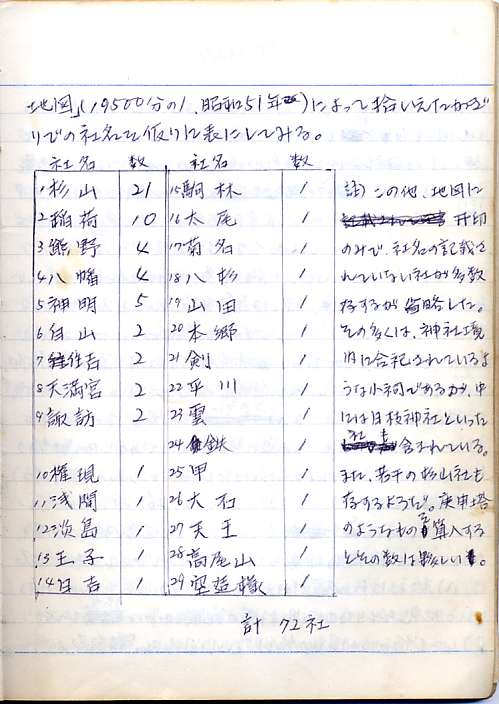 地図(19500分の1、昭和51年)によって拾いえたかぎ
りでの社名を仮りに表にしてみる。
社名 数 社名 数
1 杉山 21 15 駒林 1
2 稲荷 10 16 太尾 1
3 熊野 4 17 菊名 1
4 八幡 4 18 八杉 1
5 神明 5 19 山田 1
6 白山 2 20 本郷 1
7 住吉 2 21 剣 1
8 天満宮 2 22 平川 1
9 諏訪 2 23 雲 1
24 鉄 1
10 権現 1 25 甲 1
11 浅間 1 26 大石 1
12 淡島 1 27 天王 1
13 王子 1 28 高尾山 1
14 日吉 1 29 1
註) この他、地図に
卍印
のみで、社名の記載さ
れていない社が多数
存するが省略した。
その多くは、神社境
内に合祀されているよ
うな小祠であるが、中
には日枝神社といった
社も含まれている。
また、若干の杉山社も
存するようだ。庚申塔
のようなものを算入する
とその数は夥しい。
計 72社